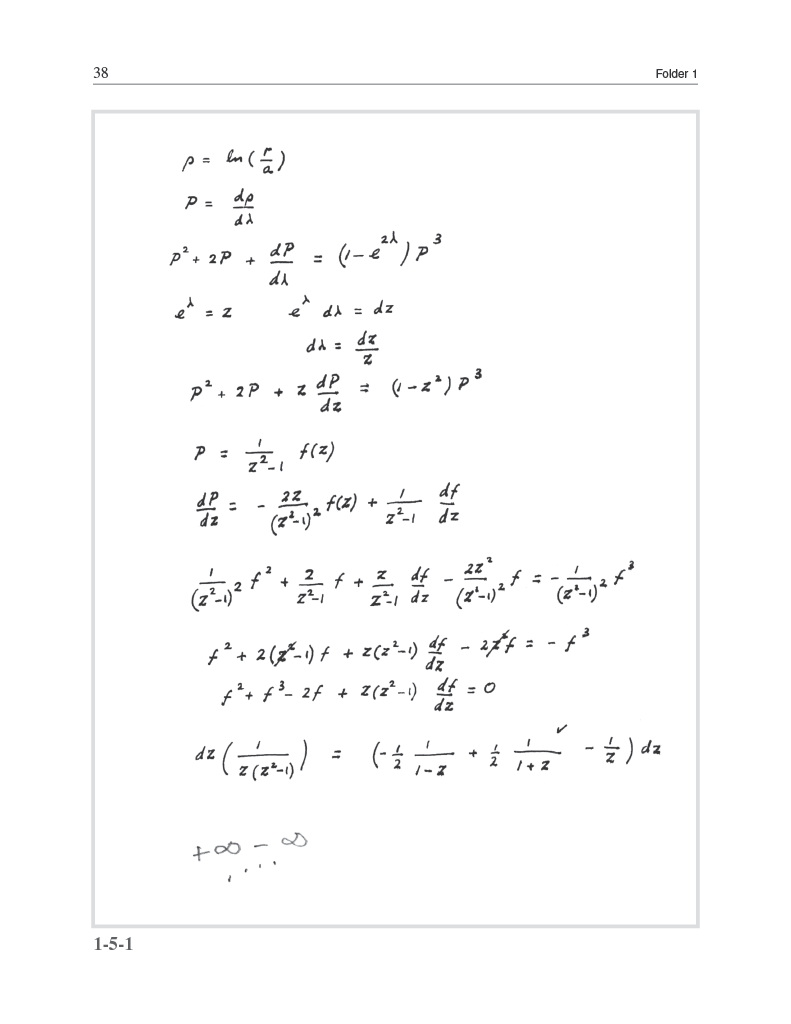 38 Folder 1
ρ = ln ( r/a )
P = dρ/dλ
P² + 2P + dP/dλ = (1 - e^{2λ}) P³
e^λ = z e^λ dλ = dz
dλ = dz/z
P² + 2P + z dP/dz = (1 - z²) P³
P = 1/(z²-1) f(z)
dP/dz = - 2z/(z²-1)² f(z) + 1/(z²-1) df/dz
1/(z²-1)² f² + 2/(z²-1) f + z/(z²-1) df/dz - 2z²/(z²-1)² f = - 1/(z²-1)² f³
f² + 2(z²-1) f + z(z²-1) df/dz - 2z²f = - f³
f² + f³ - 2f + z(z²-1) df/dz = 0
dz ( 1/(z(z²-1)) ) = ( -1/2 1/(1-z) + 1/2 1/(1+z) ✓ - 1/z ) dz
+∞ - ∞
. . . .
1-5-1